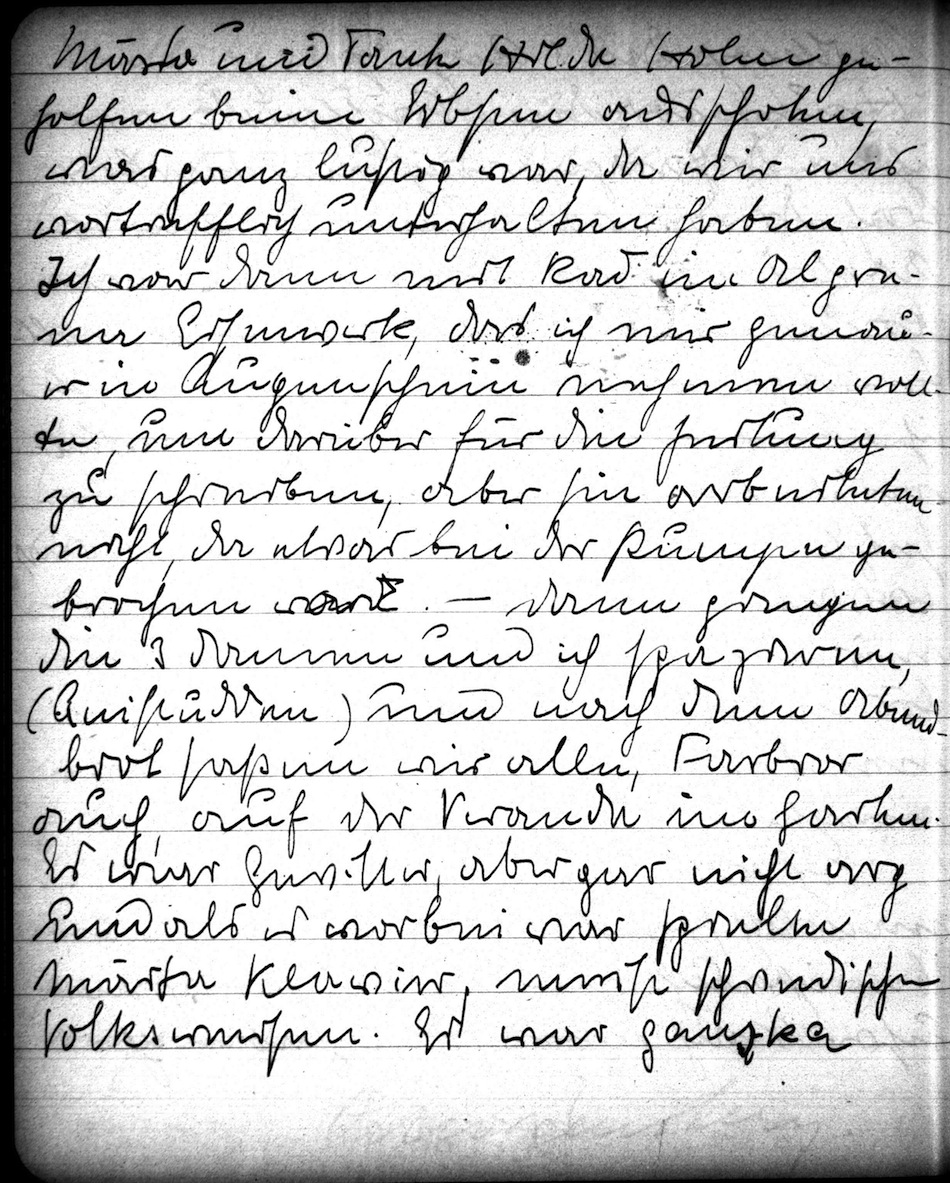 Märta und Tante Hilde Holm ge-
holfen beim Erbsen ausschoten,
was ganz lustig war, da wir uns
vortrefflich unterhalten haben.
Ich war dann mit Rad im Algra-
ma Eisenwerk, das ich mir genau-
er in Augenschein nehmen woll-
te, um darüber für die Zeitung
zu schreiben, aber sie arbeiteten
nicht, da etwas bei der Pumpe ge-
brochen ward. – Dann gingen
die 3 Damen und ich spazieren,
(Aussudden) und nach dem Abend-
brot saßen wir alle, Farbror
auch, auf der Veranda im Garten.
Es war Gewitter, aber gar nicht arg
und als es vorbei war spielte
Märta Klavier, meist schwedische
Volksweisen. Es war ganska